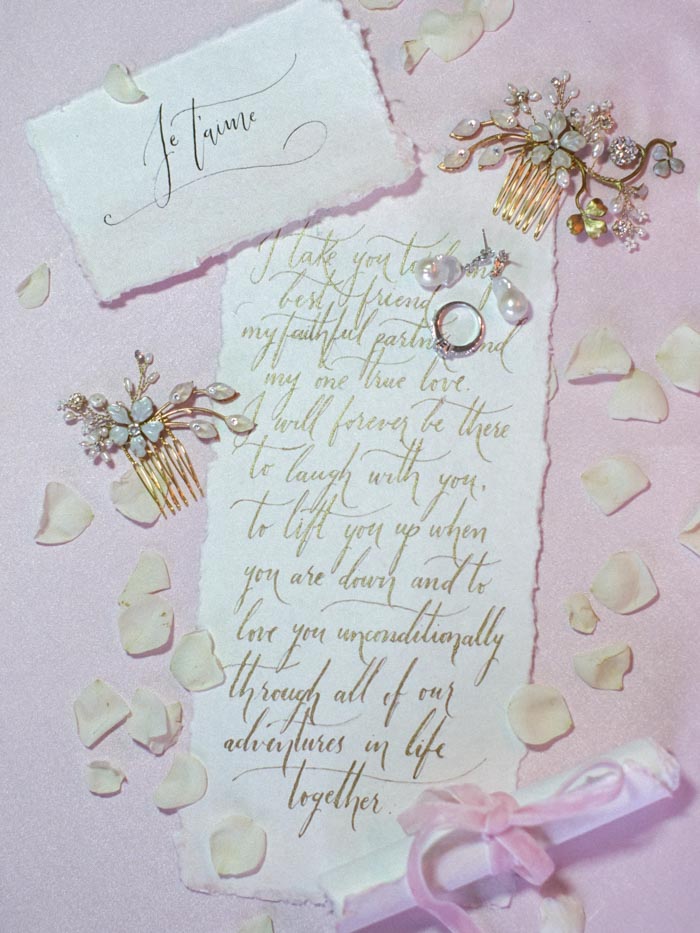 Je t'aime
I take you to be my
best friend
my faithful partner and
my one true love.
I will forever be there
to laugh with you,
to lift you up when
you are down and to
love you unconditionally
through all of our
adventures in life
together.